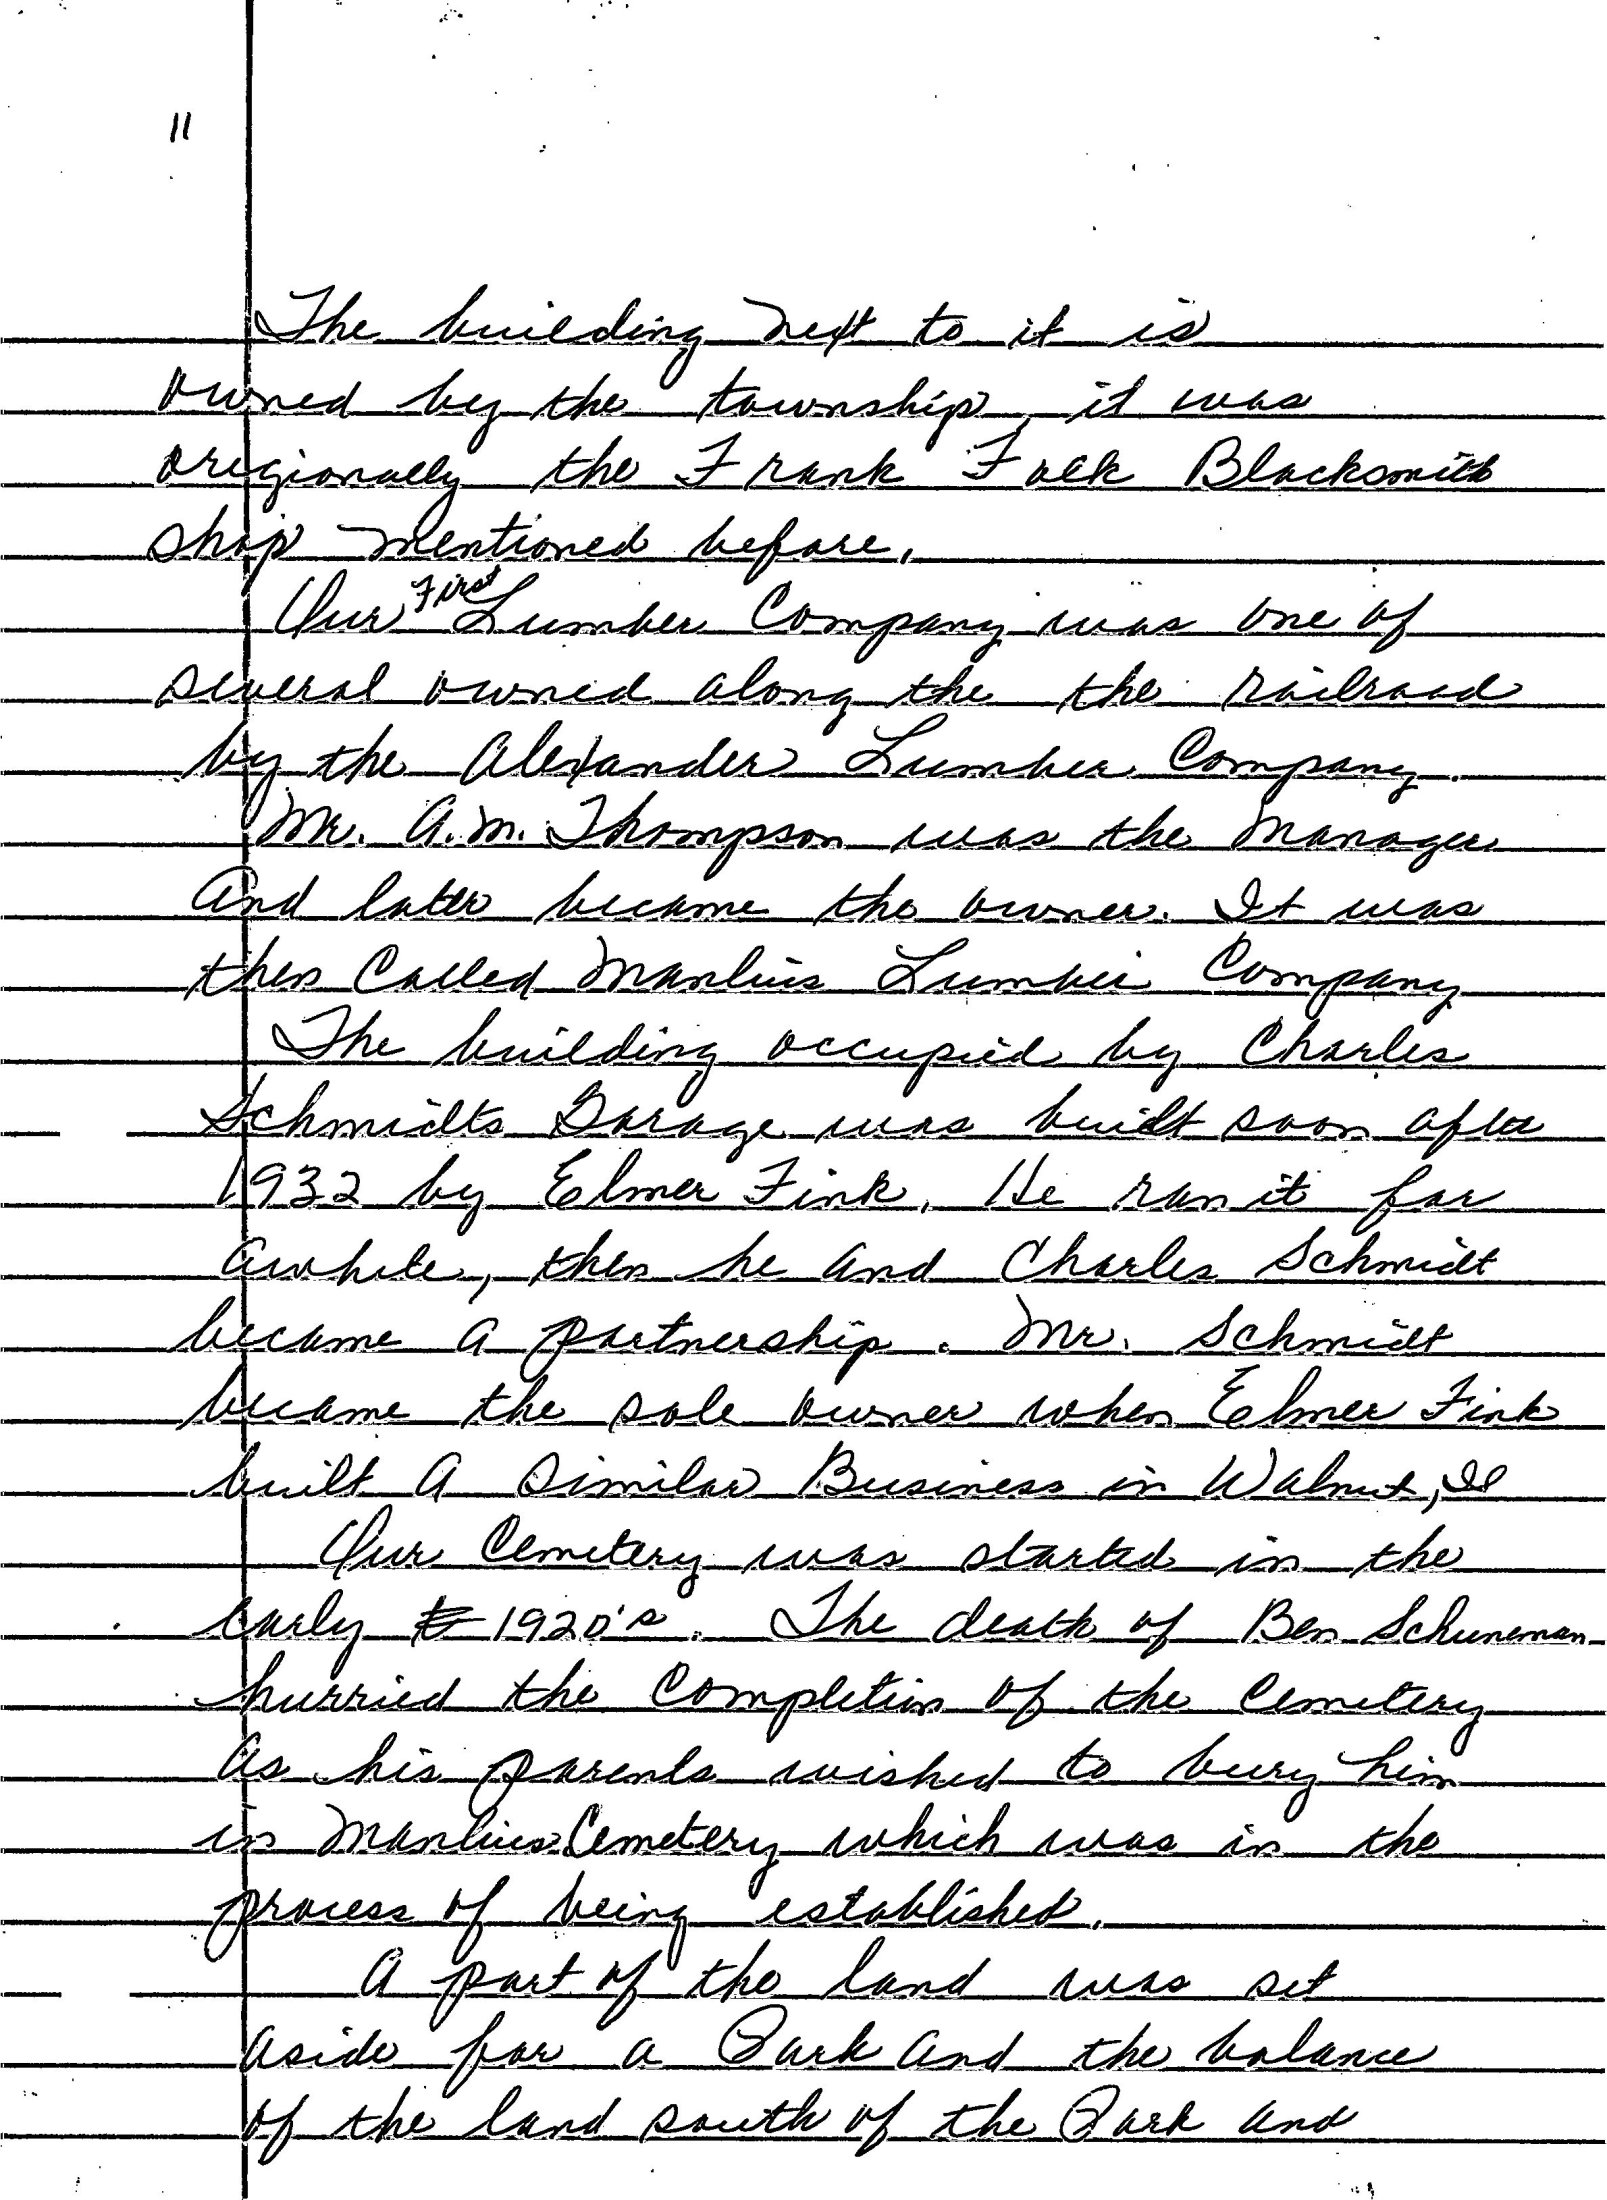 11
The building next to it is
owned by the township, it was
origionally the Frank Falk Blacksmith
shop mentioned before.
Our First Lumber Company was one of
several owned along the the railroad
by the Alexander Lumber Company.
Mr. A.M. Thompson was the Manager
And later became the owner. It was
then Called Manlius Lumber Company
The building occupied by Charles
Schmidts Garage was built soon after
1932 by Elmer Fink. He ran it for
awhile, then he and Charles Schmidt
became a partnership. Mr. Schmidt
became the sole owner when Elmer Fink
built A Similar Business in Walnut, Il
Our Cemetery was started in the
early 1920's. The death of Ben Schuneman
hurried the Completion of the Cemetery
As his parents wished to bury him
in Manlius Cemetery which was in the
process of being established.
A part of the land was set
aside for a Park and the balance
of the land south of the Park and